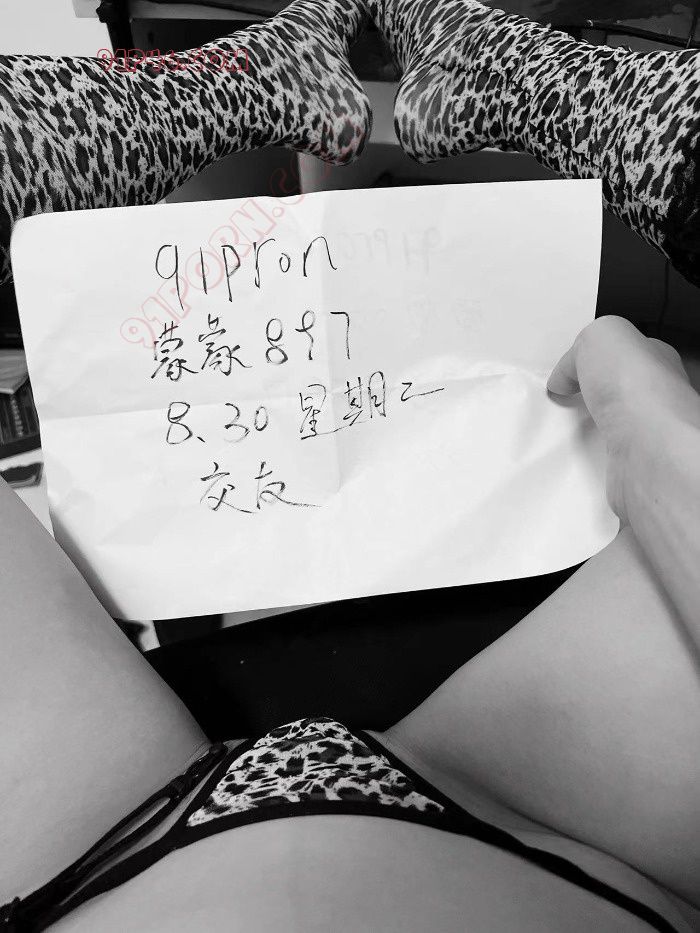 91PORN.COM
91pron
蒙蒙897
8.30 星期二
交友